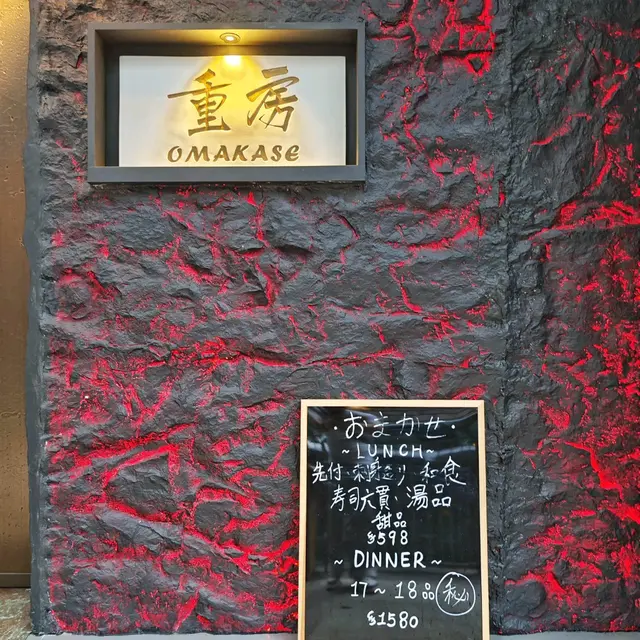 重房
OMAKASE
·おまかせ·
~LUNCH~
先付、刺身盛り、和食
寿司六貫、湯品
甜品
$598
~ DINNER ~
17~18品 秘
$1580